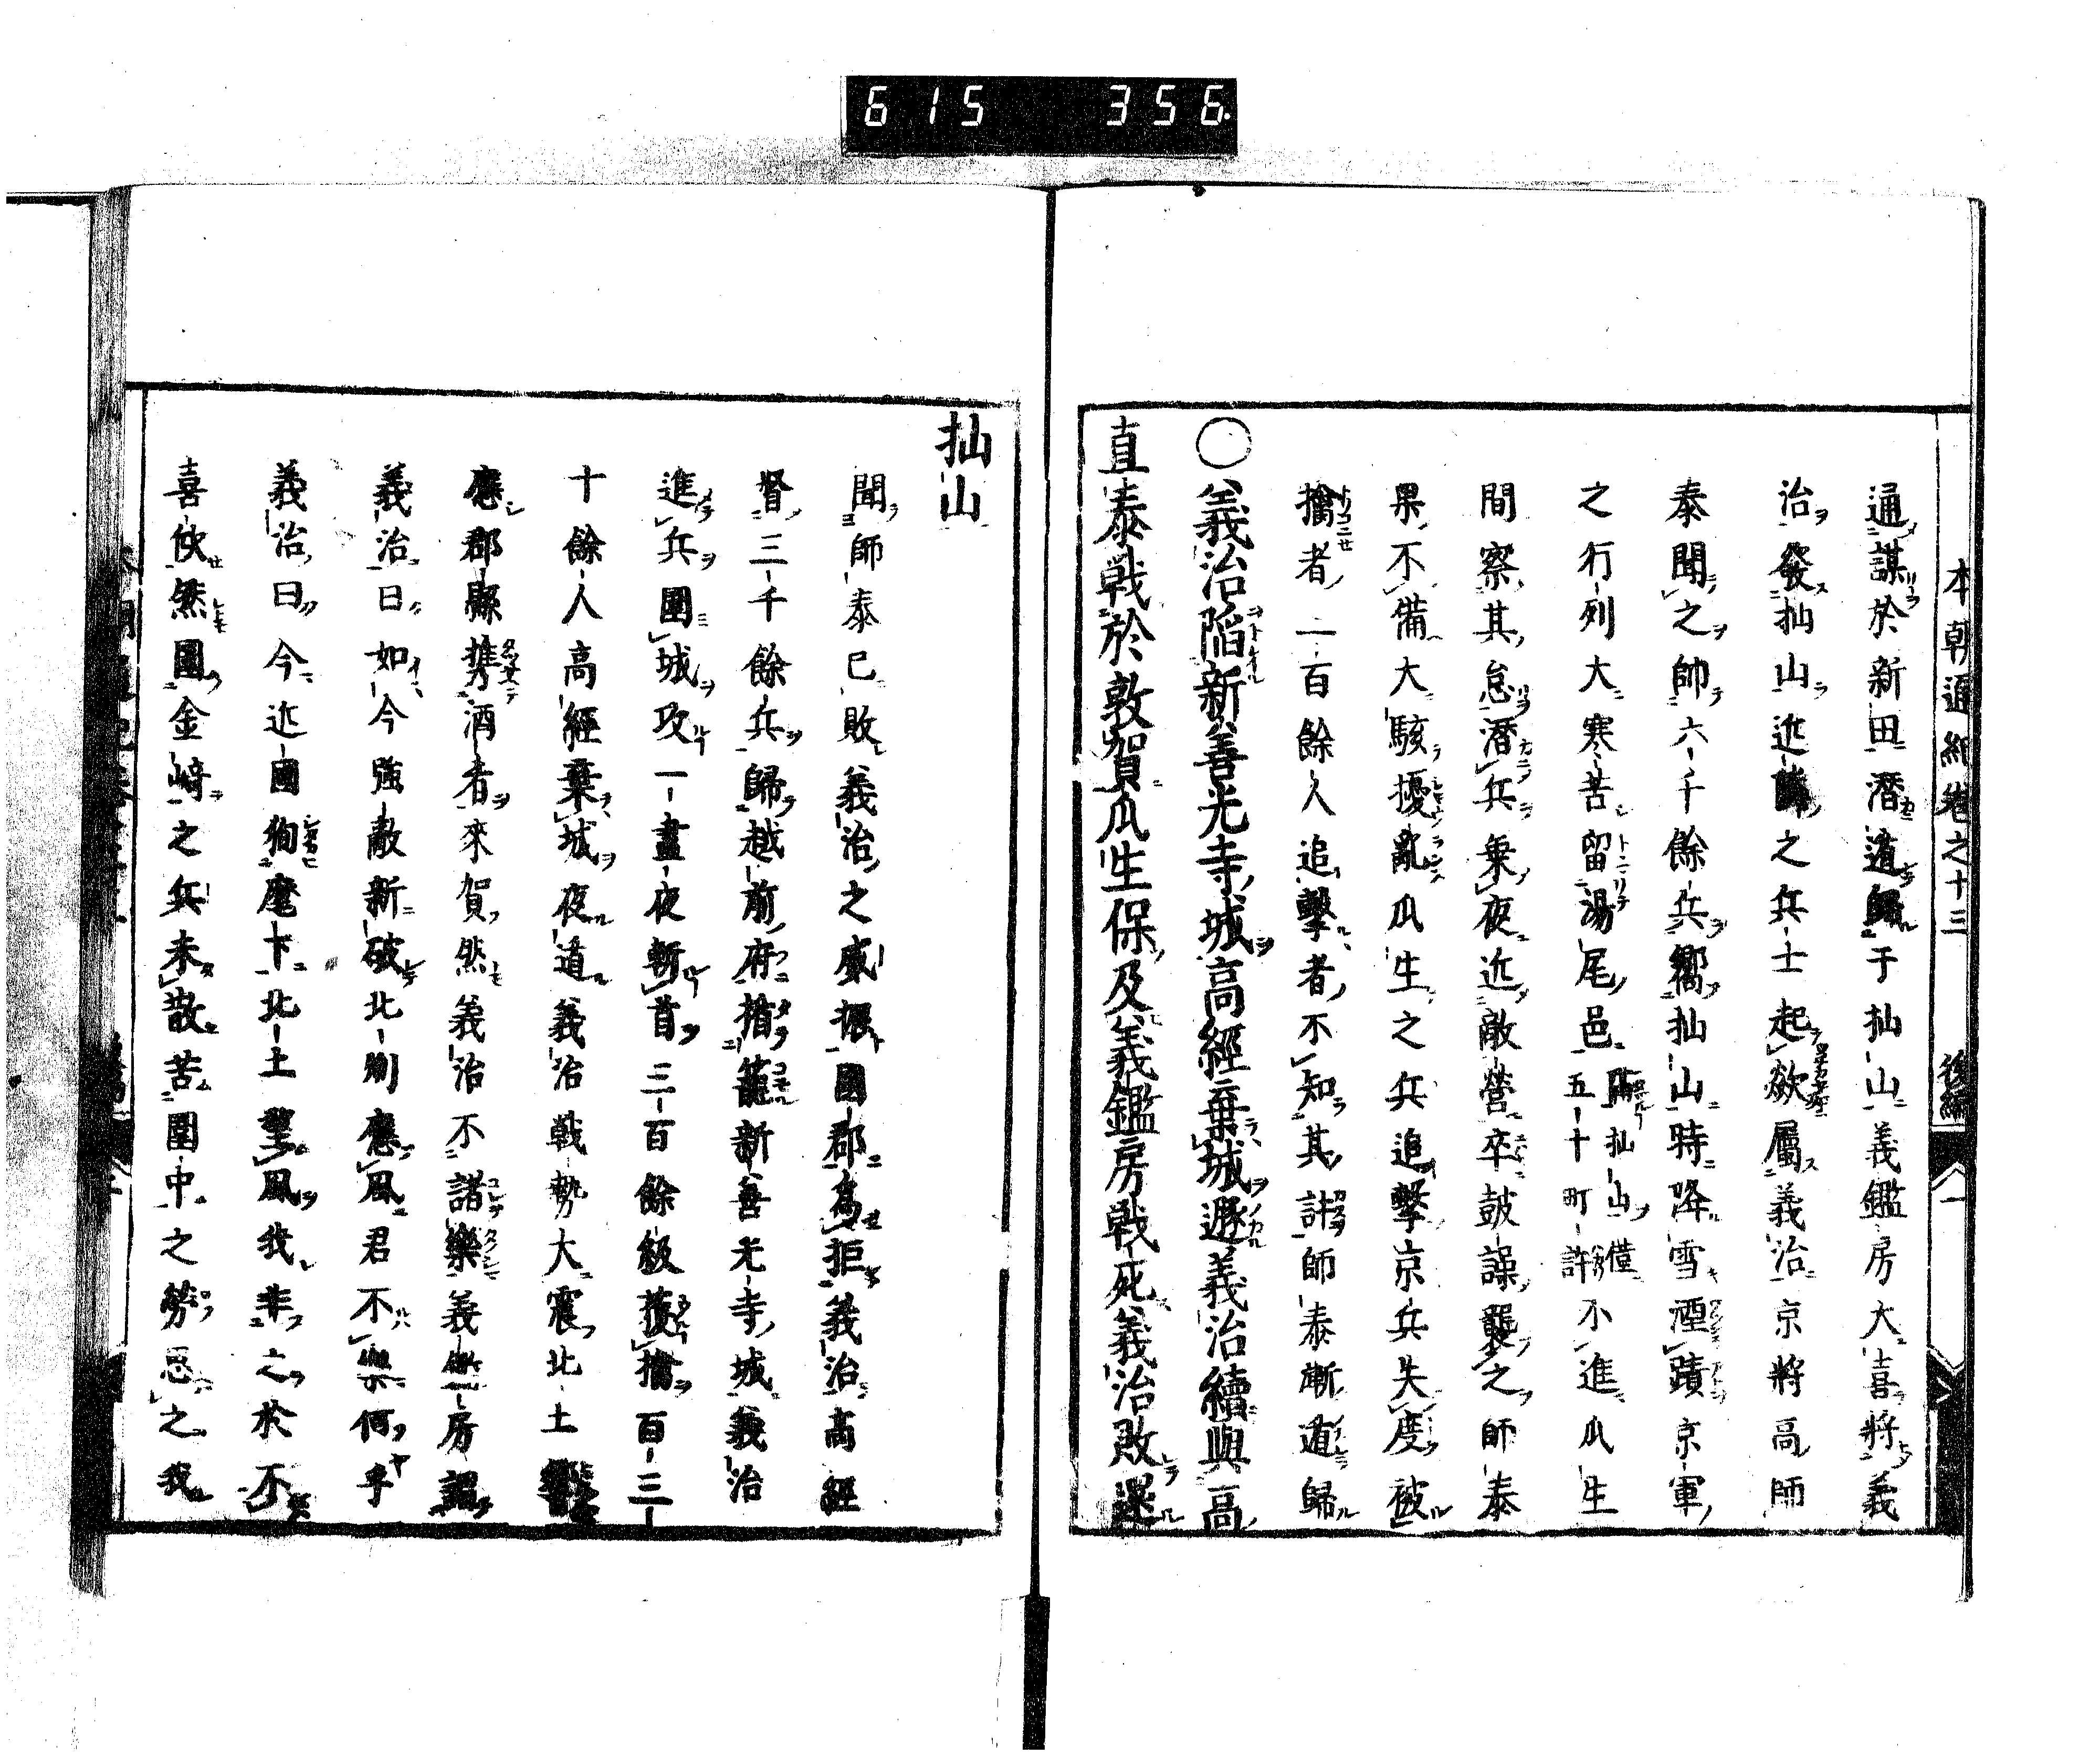 615 356
本朝通紀卷之十三 後編 一
通謀於新田潛遁歸于拁山義鑑房大喜將義
治發拁山近隣之兵士起欲屬義治京將高師
泰聞之帥六千餘兵嚮拁山時降雪湮蹟京軍
之行列大寒苦留湯尾邑隔拁山僅五十町許不進瓜生
間察其怠潛兵乘夜近敵營卒鼓譟襲之師泰
果不備大駭擾亂瓜生之兵追擊京兵失度被
擒者二百餘人追擊者不知其計師泰漸遁歸
○義治陷新善光寺城高經棄城遯義治續與高
直泰戰於敦賀瓜生保及義鑑房戰死義治敗還
拁山
聞師泰已敗義治之威振國郡為拒義治高經
督三千餘兵歸越前府楯籠新善光寺城義治
進兵圍城攻一晝夜斬首三百餘級獲擒百三
十餘人高經棄城夜遁義治戰勢大震北土
應郡縣携酒者來賀然義治不諾樂義鑑房謂
義治曰如今強敵新破北剏應風君不樂何乎
義治曰今近國徇麾下北土望風我非之於不
喜使然圍金﨑之兵未散苦圍中之勞忍之我